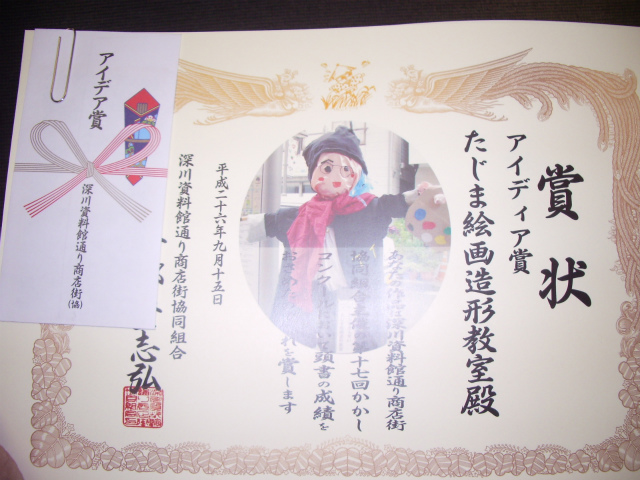 賞状
アイディア賞
たじま絵画造形教室殿
あなたの作品は深川資料館通り商店街
協同組合主催の第十七回かかし
コンクールにおいて頭書の成績を
おさめ これを賞します
平成二十六年九月十五日
深川資料館通り商店街協同組合
志弘
アイデア賞
深川資料館通り商店街(協)